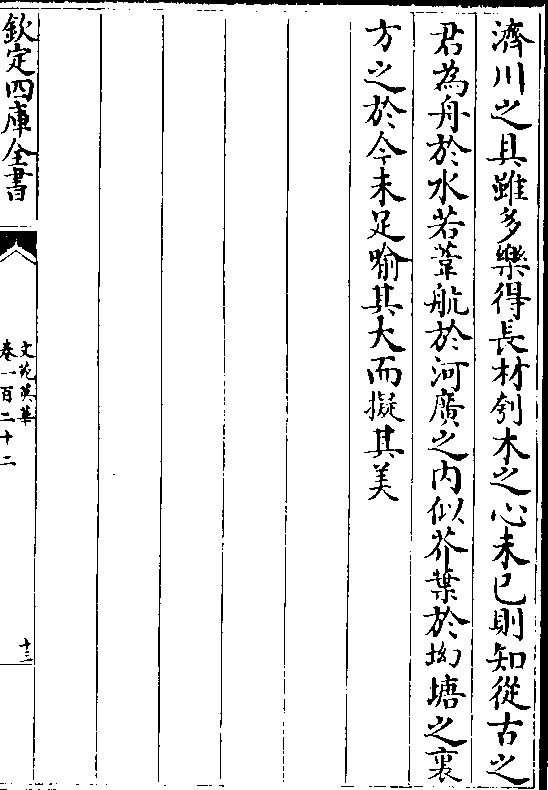 濟川之具雖多樂得長材刳木之心未已則知從古之
君為舟於水若葦航於河廣之内似芥葉於坳塘之裏
方之於今未足喻其大而擬其美
欽定四庫全書
文苑英華
卷一百二十二
十三